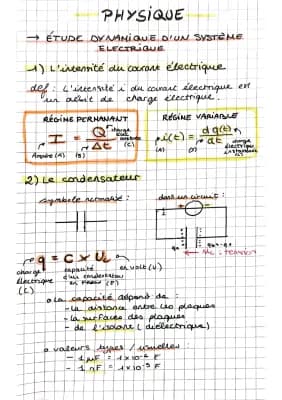 PHYSIQUE
→ ÉTUDE DYNAMIQUE D'UN SYSTÈME
ELECTRIQUE
1) L'intensité du courant électrique
def : L'intensité i du courant électrique est
un débit de charge électrique.
RÉGIME PERMANANT
I = Q / Δt
charge
(C)
Ampère (A) (s)
RÉGIME VARIABLE
i(t) = dq(t) / dt
charge
électrique
instantanée
(C)
(A) (s)
2) Le condensateur
symbole normalisé :
dans un circuit :
q = C × Uc
charge
électrique
(C)
capacité
d'un condensateur
en FARAD (F)
en volt (V)
o La capacité dépend de :
- la distance entre les plaques
- la surfaces des plaques
- de l'isolant (diélectrique)
o valeurs types / usuelles :
- 1 μF = 1×10⁻⁶ F
- 1 nF = 1×10⁻⁹ F